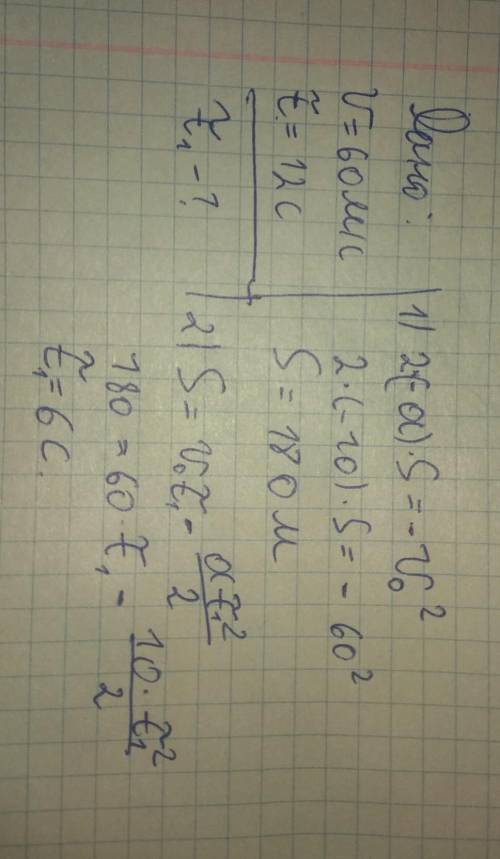 Дано:
V = 60 м/с
t = 12 с
t₁ - ?
1) 2(-a)·S = -V₀²
2·(-10)·S = -60²
S = 180 м
2) S = V₀t₁ - at₁²/2
180 = 60·t₁ - 10·t₁²/2
t₁ = 6 с.